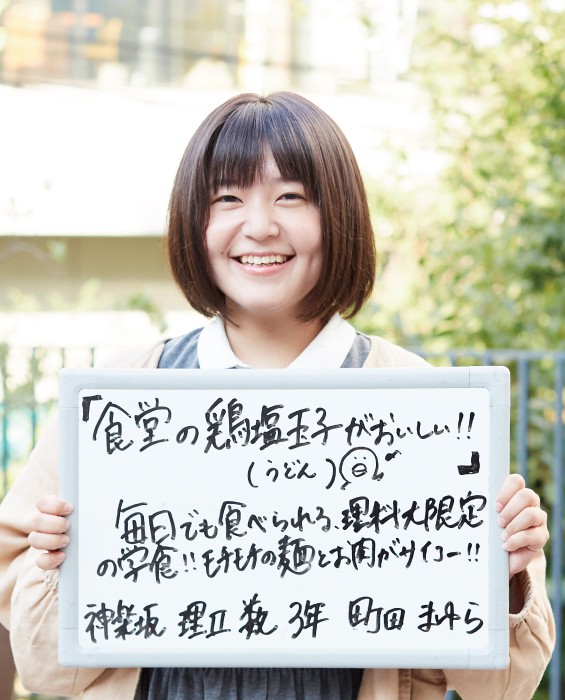 「食堂の鶏塩玉子がおいしい!!
(うどん)」
毎日でも食べられる、理科大限定
の学食!!モチモチの麺とお肉がサイコー!!
神楽坂 理Ⅱ 数 3年 町田 まゆら